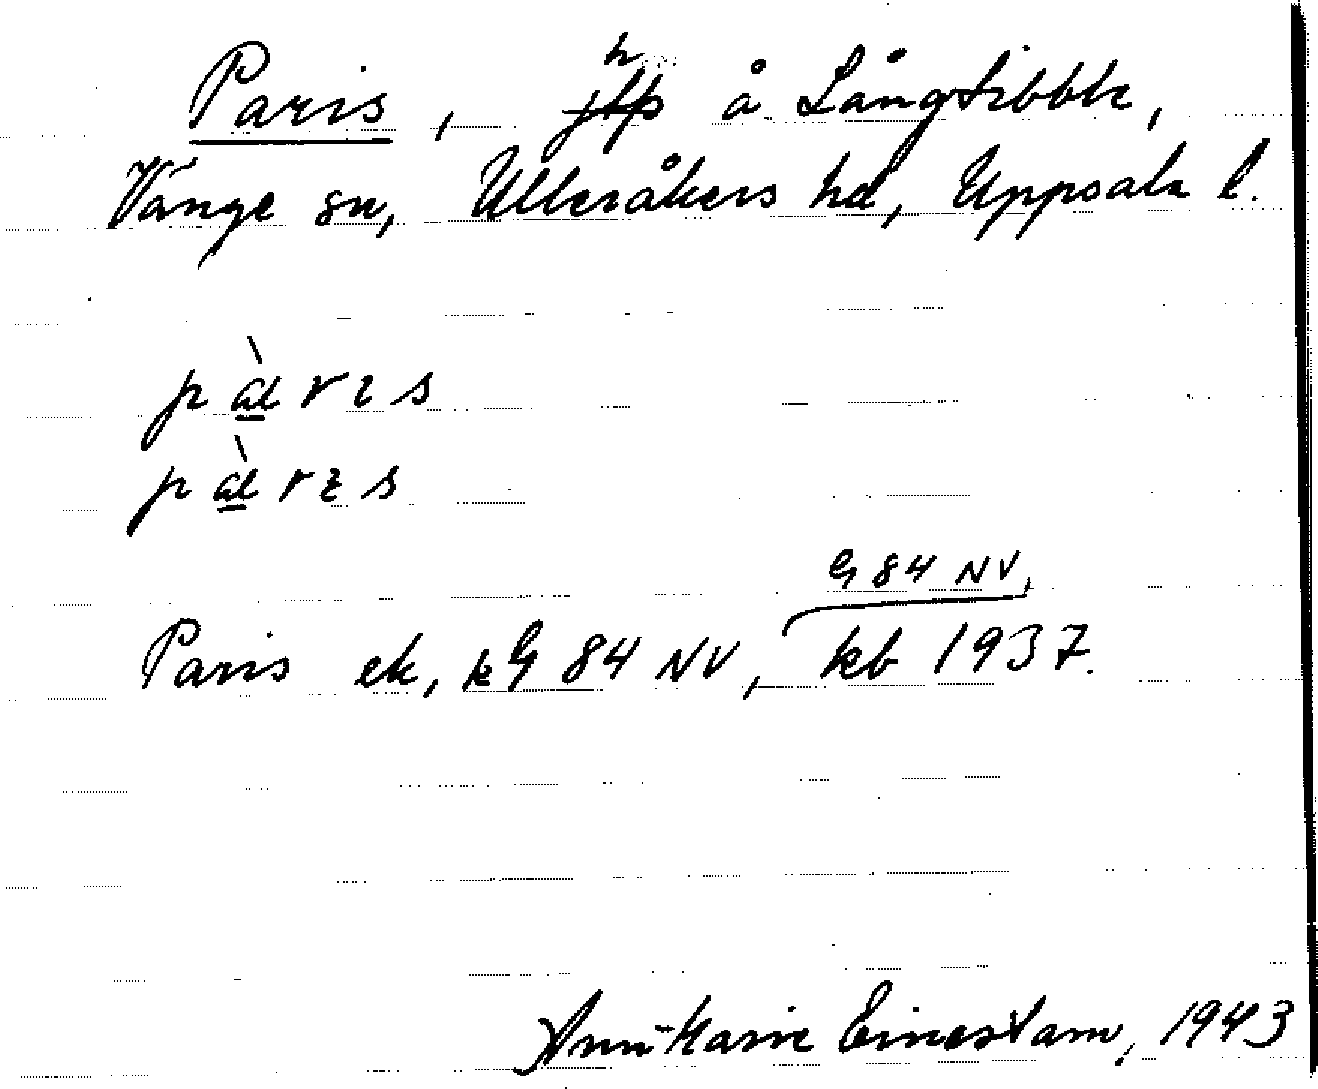 Paris, h å Långtibble,
Vänge sn, Ulleråkers hd, Uppsala l.
pàrıs
pàrıs
G 84 NV,
Paris ek, k G 84 NV, kb 1937.
Ann-Marie Einestam, 1943